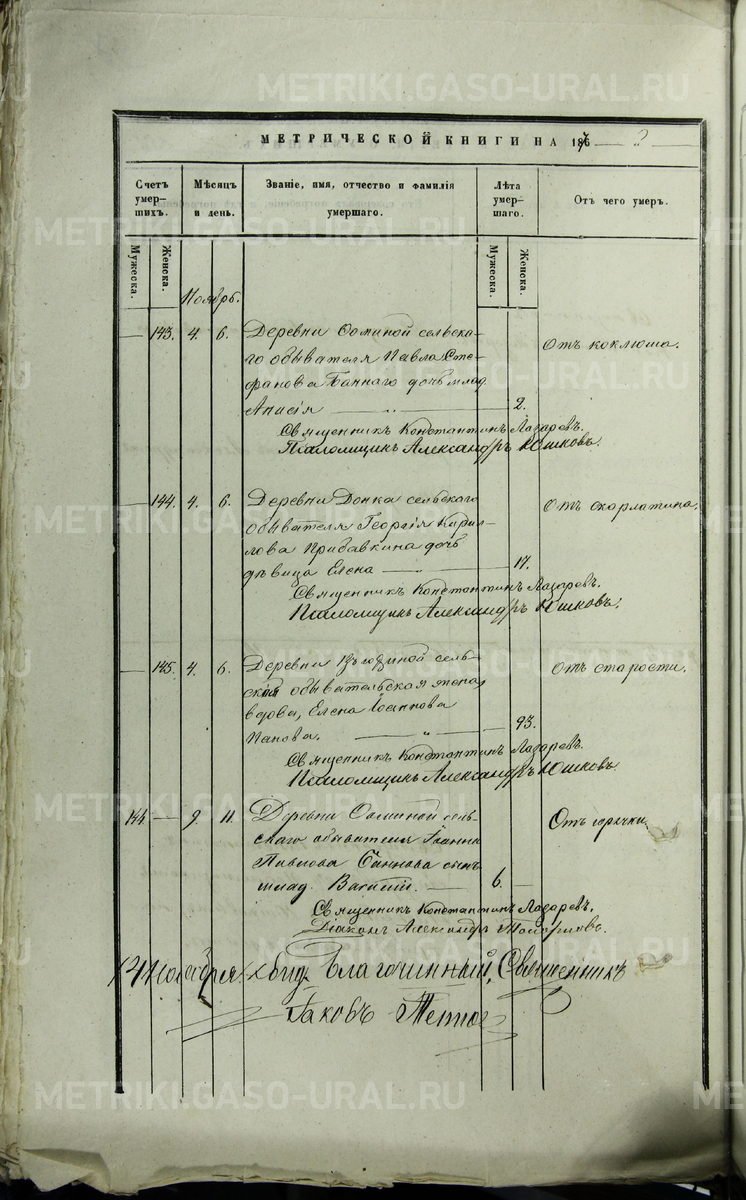 METRIKI.GASO-URAL.RU
МЕТРИЧЕСКОЙ КНИГИ НА 187
Счетъ умер-шихъ.
Мѣсяцъ и день.
Званіе, имя, отчество и фамилія умершаго.
Лѣта умер-шаго.
Отъ чего умеръ.
Мужеска.
Женска.
Мужеска.
Женска.
Ноябрь.
143. 4. 6. Деревни Соминой сельска-
го обывателя Павла Сте-
фанова Баннаго дочь млад.
Анисія 2.
Отъ коклюша.
Священникъ Константинъ Лазаревъ.
Псаломщикъ Александръ Юшковъ.
144. 4. 6. Деревни Донка сельскаго
обывателя Георгія Кирил-
лова Прибавкина дочь
дѣвица Елена 17.
Отъ скарлатина.
Священникъ Константинъ Лазаревъ.
Псаломщикъ Александръ Юшковъ.
145. 4. 6. Деревни сель-
ская обывательская жена,
вдова, Елена Іоаннова
Панова. 93.
Отъ старости.
Священникъ Константинъ Лазаревъ.
Псаломщикъ Александръ Юшковъ.
144 9. 11. Деревни Соминой сель-
скаго обывателя Іоанна
Павлова сынъ
млад. 6.
Отъ горячки.
Священникъ Константинъ Лазаревъ.
Діаконъ Александръ
Ноября Благочинный, Священникъ
Іаковъ